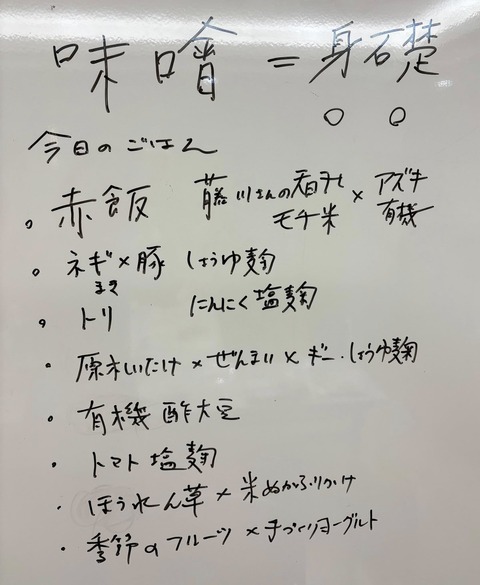 味噌 = 身礎
○ ○
今日のごはん
。赤飯 藤川さんの モチ米 × アズキ 有機
。ネギ×豚 しょうゆ麹
まき
。トリ にんにく塩麹
・原木しいたけ×ぜんまい×ギー・しょうゆ麹
・有機 酢大豆
・トマト塩麹
・ほうれん草×米ぬかふりかけ
・季節のフルーツ×手づくりヨーグルト